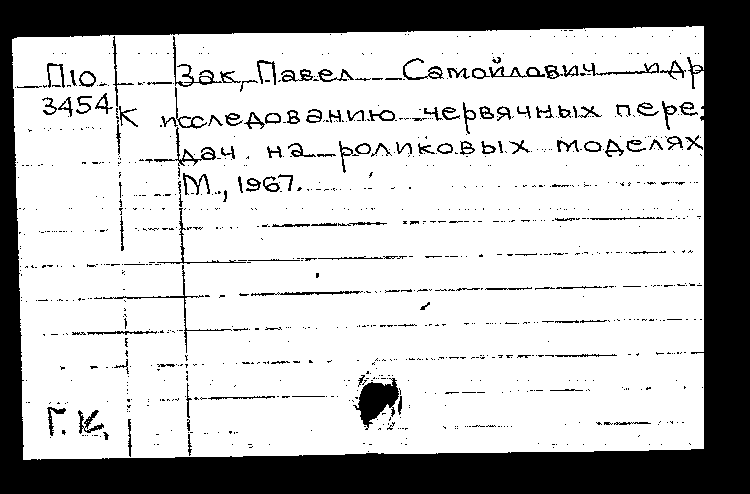 П10 Зак, Павел Самойлович и др
3454 К исследованию червячных пере-
дач на роликовых моделях
М., 1967.
Г.К.